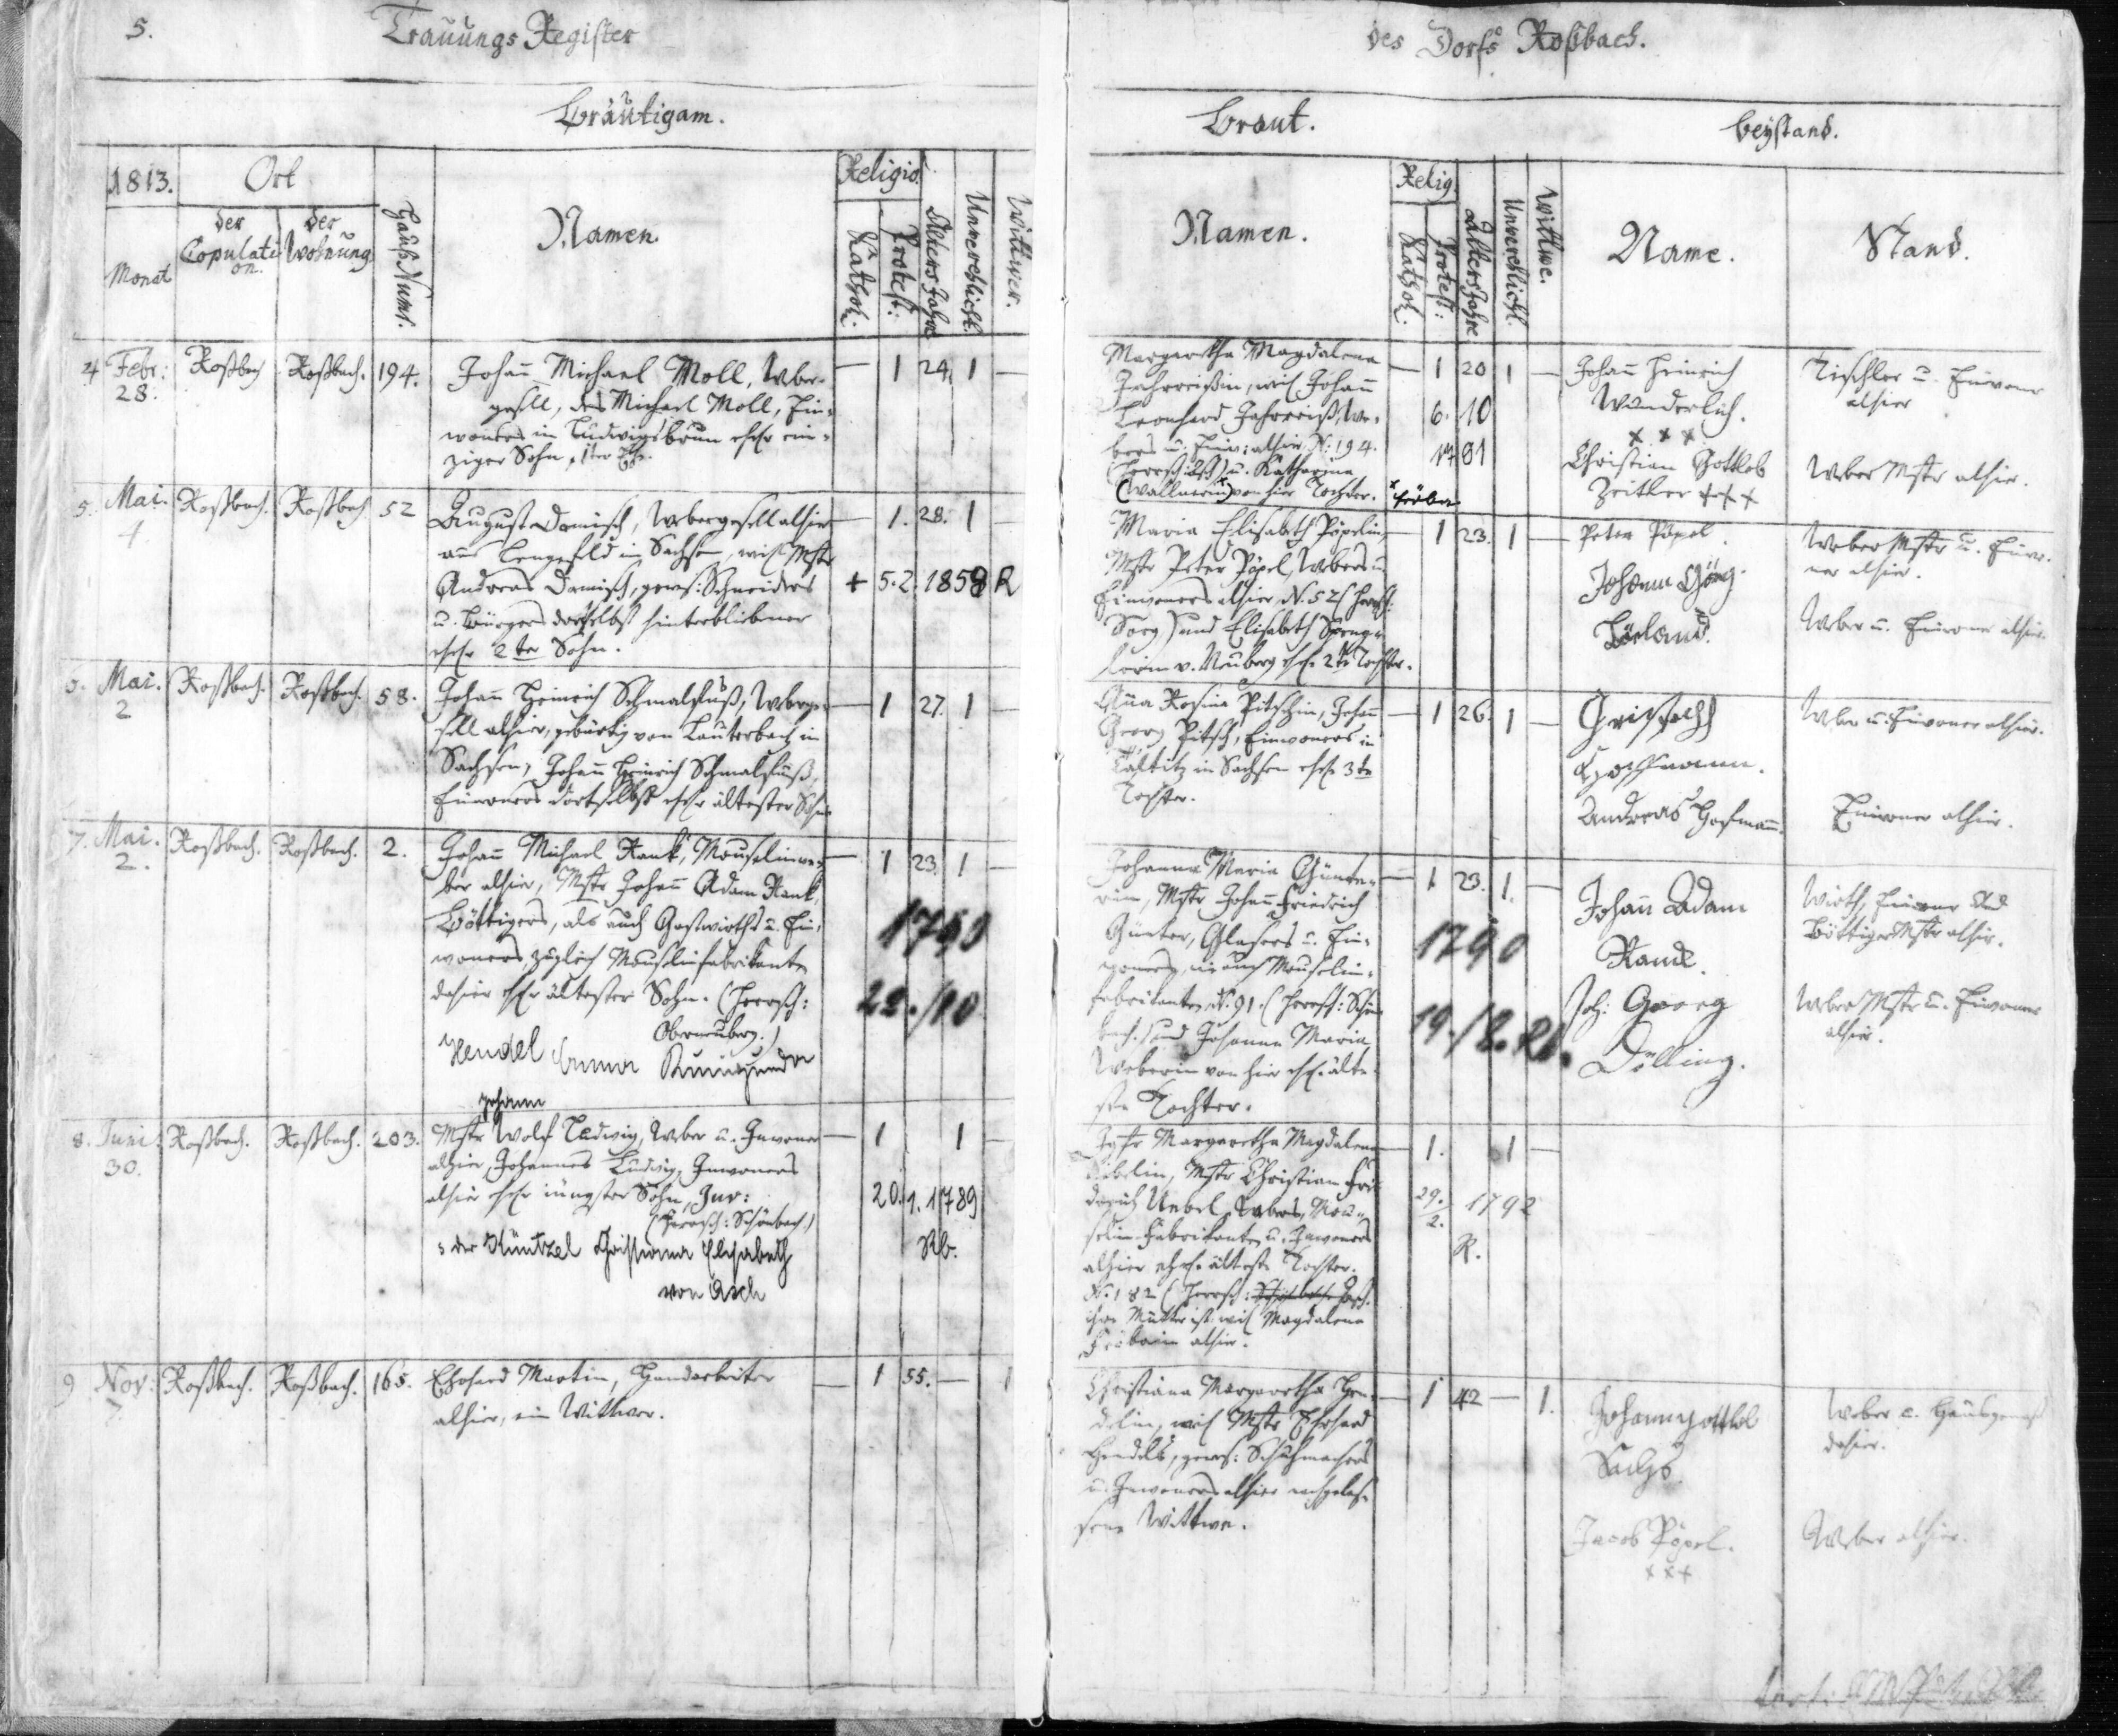 5.
Trauungs Register
des Dorfs Roßbach.
Bräutigam.
Braut.
Beystand.
1813.
Ort
Monat
der Copulati
on.
der Wohnung
Hauß Numr.
Namen.
Religio.
Kathol:
Protest:
Alters Jahre
Unverehlicht.
Wittwer.
Namen.
Relig.
Kathol.
Protest:
Alters Jahre
Unverehlicht.
Wittwe.
Name.
Stand.
4 Febr: 28. Roßbach Roßbach. 194.
Johann Michael Moll, Weber-
gesell, des Michael Moll, Ein-
woners in Ludwigsbrun ehel. ein-
ziger Sohn, 1ter Ehe.
— 1 24. 1 —
Margaretha Magdalena
wil. Johann
Leonhard
bers u. Einw: alhier N: 194.
u. Katharina
(Wallnerin) von hier Tochter.
— 1 20 1 —
6. 10
17 81
Johann Heinrich
Wunderlich.
x x x
Christian Gottlob
Zeitler x x x
Tischler u. Einwoner
alhier
Weber Mstr alhier.
5. Mai. 4 Roßbach. Roßbach 52
August Damisch, Webergesell alhier
aus Lengefeld in Sachsen, wil. Mstr
Andreas Damisch, gewes: Schneiders
u. Bürgers daselbst hinterbliebner
ehel. 2ter Sohn.
— 1. 28. 1
+ 5. 2. 1858 R
Maria Elisabeth Pöpelin,
Mstr Peter Pöpel, Webers u.
Einwoners alhier, N. 52 (Herrsch:
Sorg) und Elisabeth Speng-
lerin v. Neuberg ehel. 2te Tochter.
— 1 23. 1 —
Peter Pöpel.
Johann Görg.
Weber Mstr u. Einwo-
ner alhier.
Weber u. Einwoner alhier.
Mai. 2 Roßbach. Roßbach. 58.
Johann Heinrich Schmalfuß, Weberge-
sell alhier, gebürtig von Lauterbach in
Sachsen, Johann Heinrich Schmalfuß,
Einwoners dortselbst ehel. ältester Sohn
— 1 27. 1 —
Anna Rosina Pitschin, Johann
Georg Pitsch, Einwoners in
Taltitz in Sachsen ehel. 3te
Tochter.
— 1 26. 1 —
Hoffmann.
Andreas Hofmann.
Weber u. Einwoner alhier.
Einwoner alhier.
7. Mai. 2. Roßbach. Roßbach. 2.
Johann Michael Rank, Mouselinwe-
ber alhier, Mstr Johann Adam Rank,
Böttigers, als auch Gastwirths u. Ein-
woners, zugleich Mouselinfabrikante
dahier ehel. ältester Sohn. (Herrsch:
Oberneuberg.)
Hendel Emma Kunigunda
— 1 23. 1 —
22./10
Johanna Maria Günte-
rin, Mstr Johann Friedrich
Günter, Glasers u. Ein-
woners, wie auch Mouselin-
fabrikante, N. 91. (Herrsch: Schön-
bach.) und Johanna Maria
Weberin von hier ehel. älte-
ste Tochter.
— 1 23. 1. —
1790
19./2. Rb.
Johann Adam
Rank.
Joh: Georg
Dölling.
Wirth, Einwoner und
Böttiger Mstr alhier.
Weber Mstr u. Einwoner
alhier.
8. Juni. 30. Roßbach. Roßbach. 203.
Johann
Mstr Wolf Ludwig, Weber u. Inwoner
alhier, Johannes Ludwig, Inwoners
alhier ehel. jüngster Sohn, Juv:
(Herrsch: Schönbach.)
der Küntzel Christiana Elisabeth
von Asch
— 1 1 —
20. 1. 1789
Rb.
Jgfr Margaretha Magdalena
Uebelin, Mstr Christian Frie-
derich Uebel, Webers, Mou-
selin-Fabrikante u. Inwoners
alhier ehel. älteste Tochter.
N. 182 (Herrsch:
ihre Mutter ist wil. Magdalena
alhier.
— 1. 1 —
29./2. 1792
R.
9 Nov: 7. Roßbach. Roßbach. 165.
Ehrhard Martin, Handarbeiter
alhier, ein Wittwer.
— 1 55. — 1
Christiana Margaretha Hen-
delin, wil. Mstr Ehrhard
Hendels, gewes: Schuhmachers
u. Inwoners alhier nachgelas-
sene Wittwe.
— 1 42 — 1.
Johann Gottlob
Sachs.
Jacob Pöpel.
x x x
Weber u. Hausgenoß
dahier.
Weber alhier.